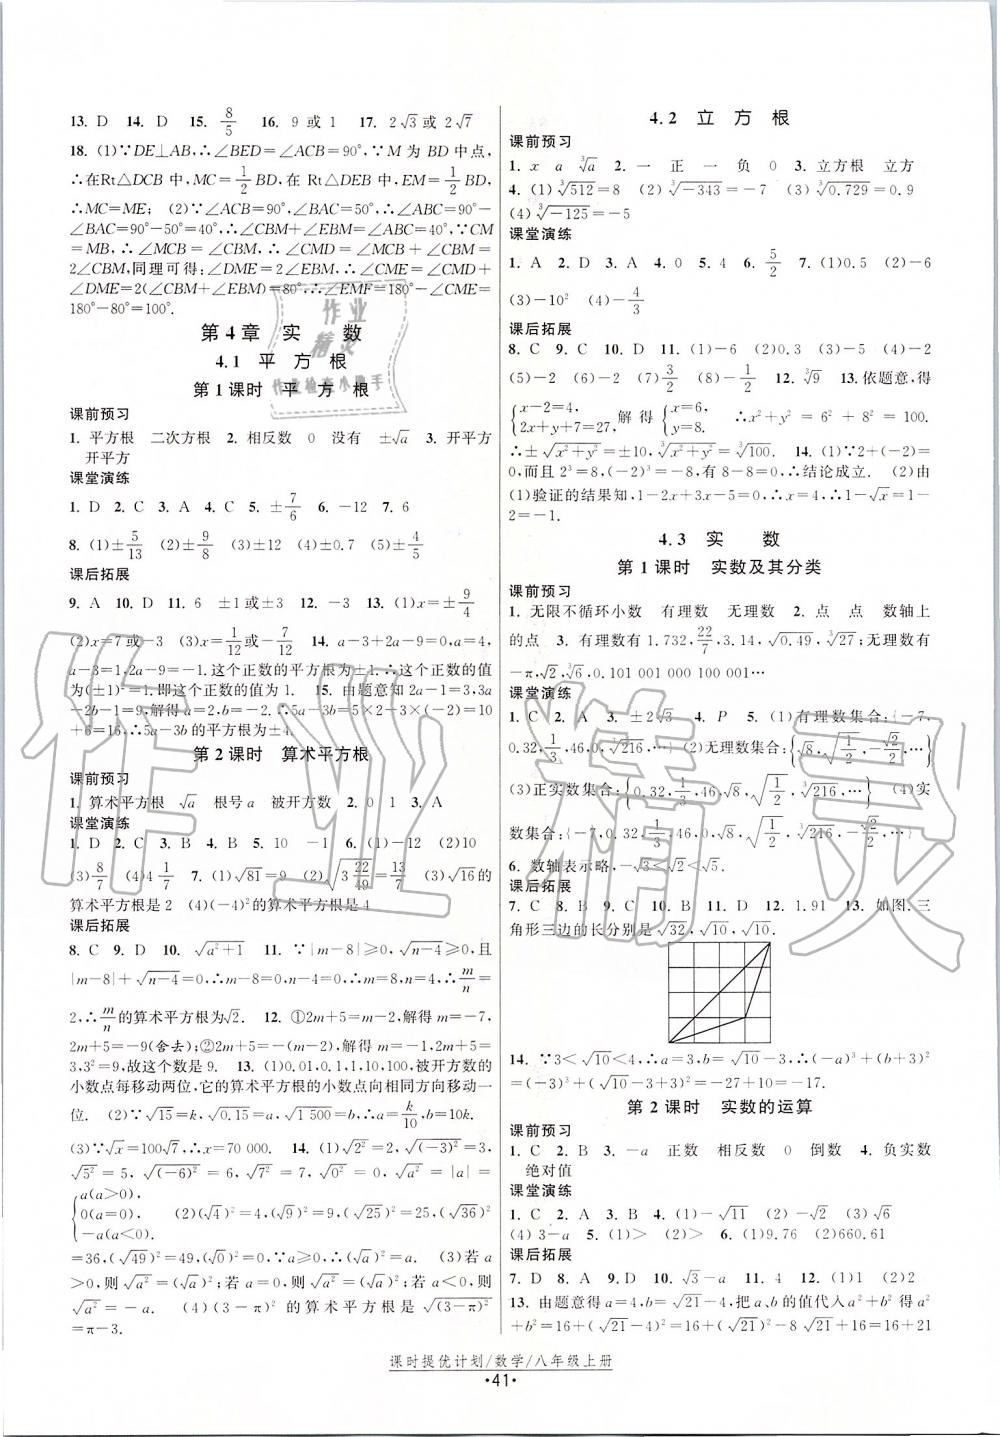 13. D　14. D　15. 8/5　16. 9 或 1　17. 2√3 或 2√7
18. (1)∵DE⊥AB,∴∠BED=∠ACB=90°,∵M 为 BD 中点,
∴在Rt△DCB 中,MC=1/2 BD,在 Rt△DEB 中,EM=1/2 BD,
∴MC=ME;　(2)∵∠ACB=90°,∠BAC=50°,∴∠ABC=90°-
∠BAC=90°-50°=40°,∴∠CBM+∠EBM=∠ABC=40°.∵CM
=MB,∴∠MCB=∠CBM,∴∠CMD=∠MCB+∠CBM=
2∠CBM,同理可得:∠DME=2∠EBM,∴∠CME=∠CMD+
∠DME=2(∠CBM+∠EBM)=80°,∴∠EMF=180°-∠CME=
180°-80°=100°.
第 4 章　实　数
4.1　平　方　根
第 1 课时　平　方　根
课前预习
1. 平方根　二次方根　2. 相反数　0　没有　±√a　3. 开平方
开平方
课堂演练
1. D　2. C　3. A　4. C　5. ±7/6　6. -12　7. 6
8. (1)±5/13　(2)±9/8　(3)±12　(4)±0.7　(5)±4/5
课后拓展
9. A　10. D　11. 6　±1或±3　12. -3　13. (1)x=±9/4
(2)x=7或-3　(3)x=1/12或-7/12　14. a-3+2a-9=0,a=4,
a-3=1,2a-9=-1.这个正数的平方根为±1,∴这个正数的值
为(±1)²=1.即这个正数的值为 1.　15. 由题意知 2a-1=3,3a
-2b-1=9,解得 a=2,b=-2.∴5a-3b=5×2-3×(-2)=10
+6=16,∴5a-3b的平方根为±4.
第 2 课时　算术平方根
课前预习
1. 算术平方根　√a　根号 a　被开方数　2. 0　1　3. A
课堂演练
1. D　2. C　3. B　4. B　5. 10　-1　6. (1)2　(2)10
(3)8/7　(4)4 1/7　7. (1)√81=9　(2)√(3 22/49)=13/7　(3)√16的
算术平方根是 2　(4)(-4)²的算术平方根是 4
课后拓展
8. C　9. D　10. √(a²+1)　11. ∵|m-8|≥0,√(n-4)≥0,且
|m-8|+√(n-4)=0,∴m-8=0,n-4=0,∴m=8,n=4,∴m/n=
2,∴m/n的算术平方根为√2.　12. ①2m+5=m-2,解得 m=-7,
2m+5=-9(舍去);②2m+5=-(m-2),解得 m=-1,2m+5=
3,3²=9,故这个数是 9.　13. (1)0.01,0.1,1,10,100,被开方数的
小数点每移动两位,它的算术平方根的小数点向相同方向移动一
位.　(2)∵√15=k,√0.15=a,√1 500=b,∴a=k/10,b=10k.
(3)∵√x=100√7,∴x=70 000.　14. (1)√2²=2,√(-3)²=3,
√5²=5,√(-6)²=6,√7²=7,√0²=0,√a²=|a|=
{a(a>0),
0(a=0),　(2)(√4)²=4,(√9)²=9,(√25)²=25,(√36)²
-a(a<0).
=36,(√49)²=49,(√0)²=0,∴(√a)²=a.　(3)若 a
>0,则√a²=(√a)²;若 a=0,则√a²=(√a)²;若 a<0,则
√a²=-a.　(4)(3-π)²的算术平方根是√(3-π)²
=π-3.
4.2　立　方　根
课前预习
1. x　a　³√a　2. 一　正　一　负　0　3. 立方根　立方
4. (1)³√512=8　(2)³√-343=-7　(3)³√0.729=0.9
(4)³√-125=-5
课堂演练
1. A　2. D　3. A　4. 0　5. 4　6. 5/2　7. (1)0.5　(2)-6
(3)-10²　(4)-4/3
课后拓展
8. C　9. C　10. D　11. (1)-6　(2)3　(3)-5　(4)-2
(5)-2　(6)-2　(7)3/2　(8)-1/2　12. ³√9　13. 依题意,得
{x-2=4, 2x+y+7=27,解得{x=6, y=8.　∴x²+y²=6²+8²=100.
∴±√(x²+y²)=±10,³√(x²+y²)=³√100.　14. (1)∵2+(-2)=
0,而且 2³=8,(-2)³=-8,有 8-8=0,∴结论成立.　(2)由
(1)验证的结果知,1-2x+3x-5=0,∴x=4,∴1-√x=1-
2=-1.
4.3　实　数
第 1 课时　实数及其分类
课前预习
1. 无限不循环小数　有理数　无理数　2. 点　点　数轴上
的点　3. 有理数有 1.732,22/7,3.14,√0.49,³√27;无理数有
-π,√2,³√6,0.101 001 000 1…
课堂演练
1. C　2. A　3. ±2√3　4. P　5. (1)有理数集合:{-7,
0.32,1/3,46,0,³√216,…}　(2)无理数集合:{√8,√(1/2),-√2/2,…}
(3)正实数集合:{0.32,1/3,46,√8,√(1/2),³√216,…}　(4)实
数集合:{-7,0.32,1/3,46,0,√8,√(1/2),³√216,-√2/2,…}
6. 数轴表示略,-√3<√2<√5.
课后拓展
7. C　8. B　9. C　10. B　11. D　12. 1.91　13. 如图.三
角形三边的长分别是√32,√10,√10.
14. ∵3<√10<4,∴a=3,b=√10-3,∴(-a)³+(b+3)²=
(-3)³+(√10-3+3)²=-27+10=-17.
第 2 课时　实数的运算
课前预习
1. C　2. B　3. -a　正数　相反数　0　倒数　4. 负实数
绝对值
课堂演练
1. C　2. A　3. B　4. (1)-√11　(2)-√2　(3)√6
(4)3-a　5. (1)>　(2)>　6. (1)9.76　(2)660.61
课后拓展
7. D　8. A　9. D　10. √3-a　11. 4　12. (1)1　(2)2
13. 由题意得 a=4,b=√21-4,把 a、b 的值代入 a²+b²得 a²
+b²=16+(√21-4)²=16+(√21-4)(√21-4)=16+16+21
课时提优计划/数学/八年级上册
·41·
作业
精灵
作业检查小助手
作业精灵